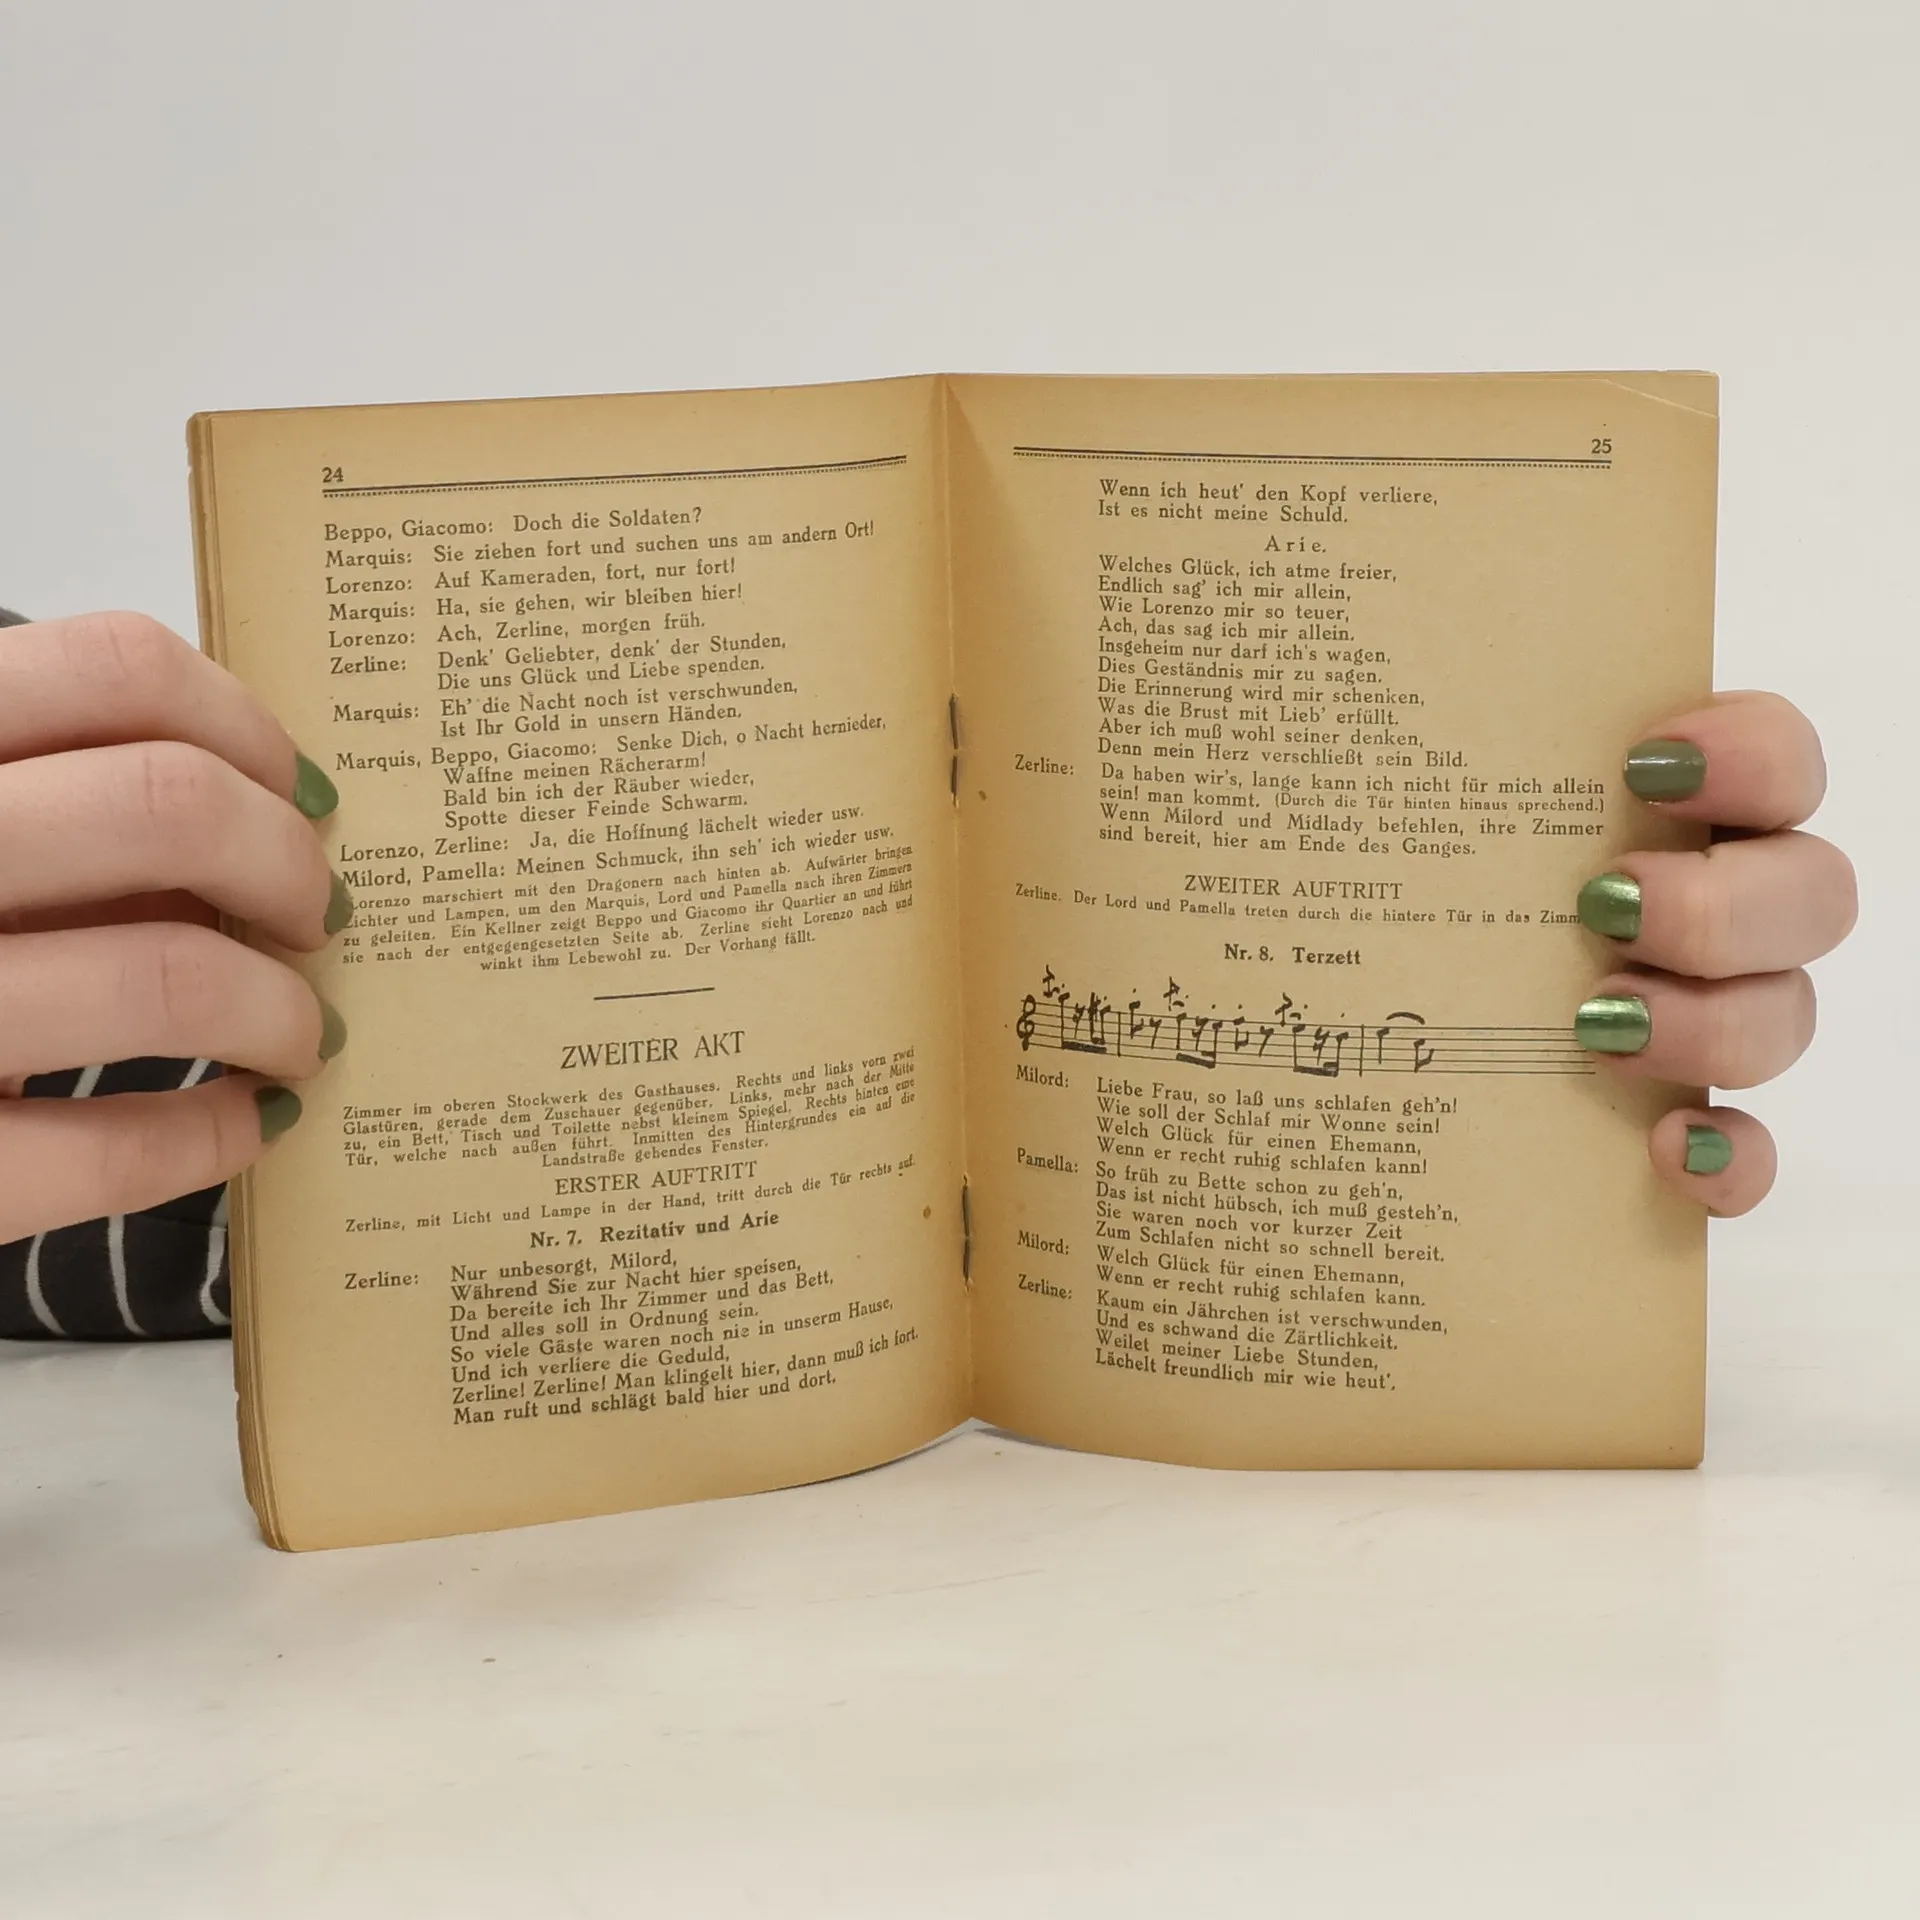 24
Beppo, Giacomo: Doch die Soldaten?
Marquis: Sie ziehen fort und suchen uns am andern Ort!
Lorenzo: Auf Kameraden, fort, nur fort!
Marquis: Ha, sie gehen, wir bleiben hier!
Lorenzo: Ach, Zerline, morgen früh.
Zerline: Denk' Geliebter, denk' der Stunden,
Die uns Glück und Liebe spenden.
Marquis: Eh' die Nacht noch ist verschwunden,
Ist Ihr Gold in unsern Händen.
Marquis, Beppo, Giacomo: Senke Dich, o Nacht hernieder,
Waffne meinen Rächerarm!
Bald bin ich der Räuber wieder,
Spotte dieser Feinde Schwarm.
Lorenzo, Zerline: Ja, die Hoffnung lächelt wieder usw.
Milord, Pamella: Meinen Schmuck, ihn seh' ich wieder usw.
Lorenzo marschiert mit den Dragonern nach hinten ab. Aufwärter bringen
Lichter und Lampen, um den Marquis, Lord und Pamella nach ihren Zimmern
zu geleiten. Ein Kellner zeigt Beppo und Giacomo ihr Quartier an und führt
sie nach der entgegengesetzten Seite ab. Zerline sieht Lorenzo nach und
winkt ihm Lebewohl zu. Der Vorhang fällt.
ZWEITER AKT
Zimmer im oberen Stockwerk des Gasthauses. Rechts und links vorn zwei
Glastüren, gerade dem Zuschauer gegenüber. Links, mehr nach der Mitte
zu, ein Bett, Tisch und Toilette nebst kleinem Spiegel. Rechts hinten eine
Tür, welche nach außen führt. Inmitten des Hintergrundes ein auf die
Landstraße gehendes Fenster.
ERSTER AUFTRITT
Zerline, mit Licht und Lampe in der Hand, tritt durch die Tür rechts auf.
Nr. 7. Rezitativ und Arie
Zerline: Nur unbesorgt, Milord,
Während Sie zur Nacht hier speisen,
Da bereite ich Ihr Zimmer und das Bett,
Und alles soll in Ordnung sein.
So viele Gäste waren noch nie in unserm Hause,
Und ich verliere die Geduld,
Zerline! Zerline! Man klingelt hier, dann muß ich fort.
Man ruft und schlägt bald hier und dort.
25
Wenn ich heut' den Kopf verliere,
Ist es nicht meine Schuld.
Arie.
Welches Glück, ich atme freier,
Endlich sag' ich mir allein,
Wie Lorenzo mir so teuer,
Ach, das sag ich mir allein.
Insgeheim nur darf ich's wagen,
Dies Geständnis mir zu sagen.
Die Erinnerung wird mir schenken,
Was die Brust mit Lieb' erfüllt.
Aber ich muß wohl seiner denken,
Denn mein Herz verschließt sein Bild.
Zerline: Da haben wir's, lange kann ich nicht für mich allein
sein! man kommt. (Durch die Tür hinten hinaus sprechend.)
Wenn Milord und Midlady befehlen, ihre Zimmer
sind bereit, hier am Ende des Ganges.
ZWEITER AUFTRITT
Zerline. Der Lord und Pamella treten durch die hintere Tür in das Zimm
Nr. 8. Terzett
Milord: Liebe Frau, so laß uns schlafen geh'n!
Wie soll der Schlaf mir Wonne sein!
Welch Glück für einen Ehemann,
Wenn er recht ruhig schlafen kann!
Pamella: So früh zu Bette schon zu geh'n,
Das ist nicht hübsch, ich muß gesteh'n,
Sie waren noch vor kurzer Zeit
Zum Schlafen nicht so schnell bereit.
Milord: Welch Glück für einen Ehemann,
Wenn er recht ruhig schlafen kann.
Zerline: Kaum ein Jährchen ist verschwunden,
Und es schwand die Zärtlichkeit.
Weilet meiner Liebe Stunden,
Lächelt freundlich mir wie heut'.